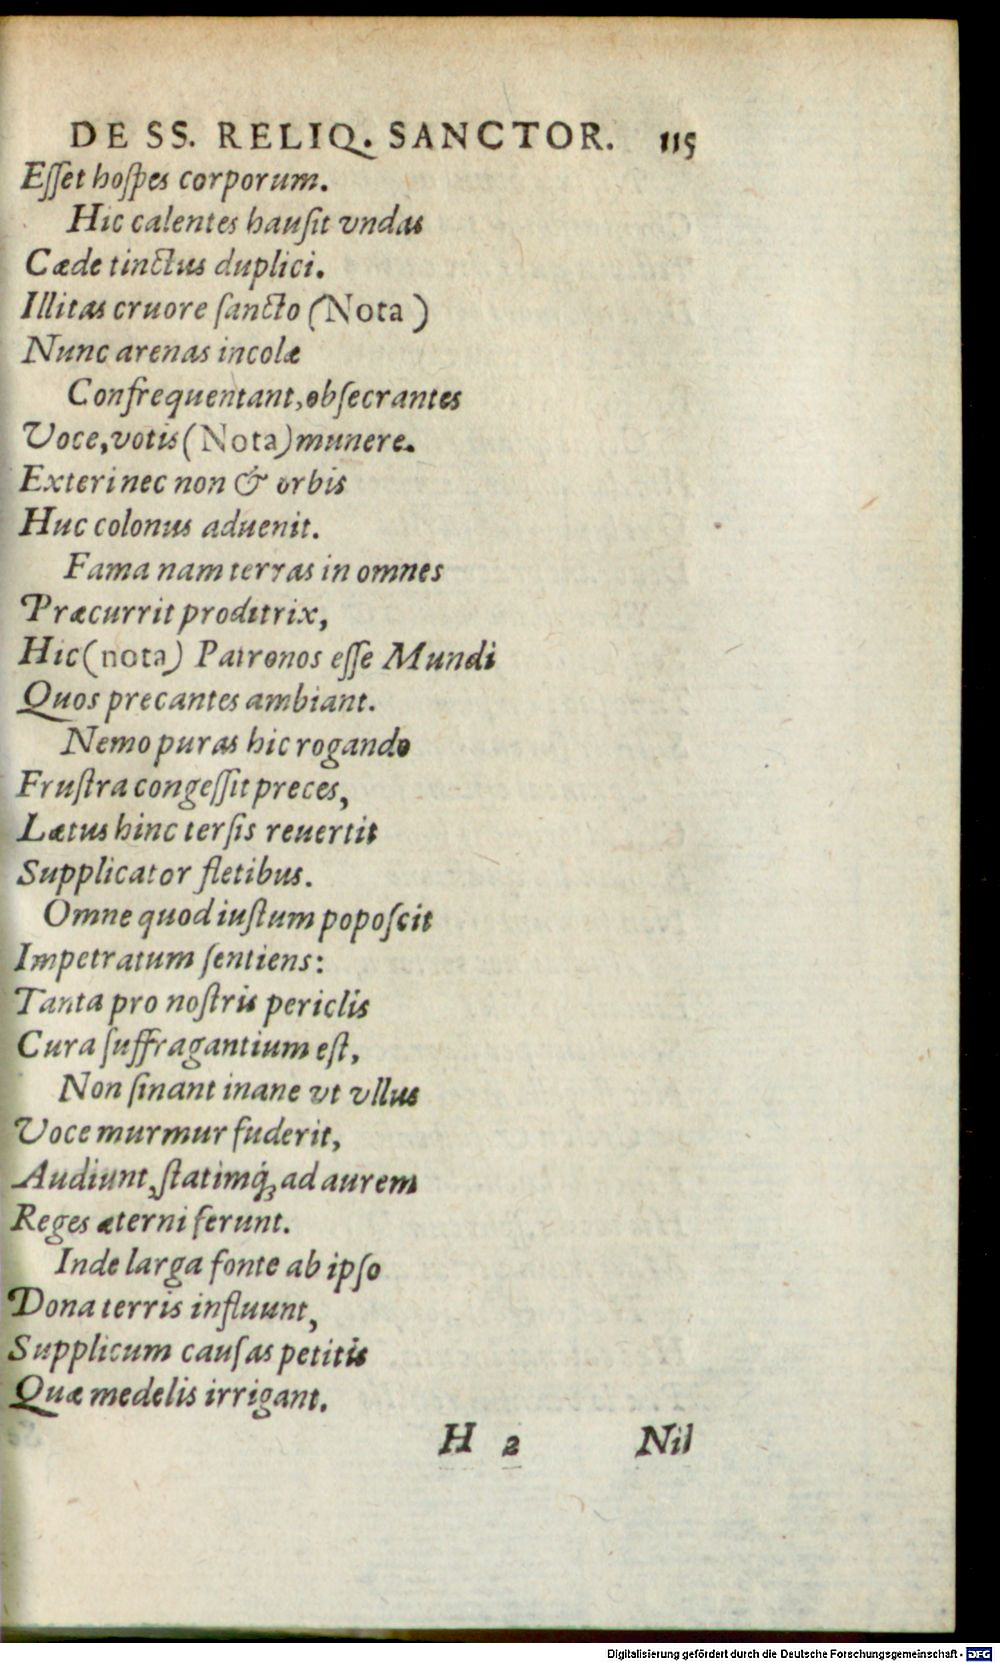 DE SS. RELIQ. SANCTOR. 115
Eſſet hoſpes corporum.
Hic calentes hauſit vndas
Cæde tinctus duplici.
Illitas cruore ſancto (Nota )
Nunc arenas incolæ
Confrequentant, obſecrantes
Voce, votis (Nota) munere.
Exteri nec non & orbis
Huc colonus aduenit.
Fama nam terras in omnes
Præcurrit proditrix,
Hic (nota) Patronos eſſe Mundi
Quos precantes ambiant.
Nemo puras hic rogando
Fruſtra congeſſit preces,
Lætus hinc terſis reuertit
Supplicator fletibus.
Omne quod iuſtum popoſcit
Impetratum ſentiens:
Tanta pro noſtris periclis
Cura ſuffragantium eſt,
Non ſinant inane vt vllus
Voce murmur fuderit,
Audiunt, ſtatimq́; ad aurem
Reges æterni ferunt.
Inde larga fonte ab ipſo
Dona terris influunt,
Supplicum cauſas petitis
Quæ medelis irrigant.
H 2 Nil
Digitalisierung gefördert durch die Deutsche Forschungsgemeinschaft - DFG